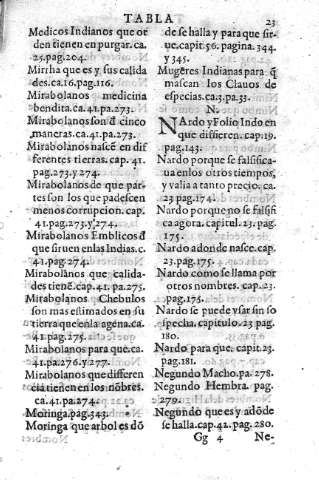 TABLA
23
Medicos Indianos que or
den tienen en purgar. ca.
25. pag. 204.
Mirrha que es y sus calida
des. ca. 16. pag. 116.
Mirabolanos medicina
bendita. ca. 41. pa. 273.
Mirabolanos son d̄ cinco
maneras. ca. 41. pa. 273.
Mirabolanos nascē en dif
ferentes tierras. cap. 41.
pag. 273. y 274.
Mirabolanos de que par-
tes son los que padescen
menos corrupcion. cap.
41. pag. 273. y 274.
Mirabolanos Emblicos d̄
que siruen enlas Indias. c.
41. pag. 274.
Mirabolanos que calida-
des tienē. cap. 41. pa. 275.
Mirabolanos Chebulos
son mas estimados en su
tierra que enla agena. ca.
41. pag. 275.
Mirabolanos para que. ca.
41. pa. 276. y 277.
Mirabolanos que differen
cia tienen en los nōbres.
ca. 41. pa. 274.
Moringa. pag. 343.
Moringa que arbol es dō
de se halla y para que sir-
ue. capit. 56. pagina. 344.
y 345.
Mugeres Indianas para q̄
mascan los Clauos de
especias. ca. 3. pa. 33.
N.
NArdo y Folio Indo en
que differen. cap. 19.
pag. 143.
Nardo porque se falsifica-
ua enlos otros tiempos,
y valia a tanto precio. ca.
23. pag. 174.
Nardo porque no se falsifi
ca agora. capitul. 23. pag.
175.
Nardo adonde nasce. cap.
23. pag. 175.
Nardo como se llama por
otros nombres. cap. 23.
pag. 175.
Nardo se puede vsar sin so
specha. capitulo. 23. pag.
180.
Nardo para que. capit. 23.
pag. 181.
Negundo Macho. pa. 278.
Negundo Hembra. pag.
279.
Negundo que es y adōde
se halla. cap. 42. pag. 280.
Gg 4
Ne-